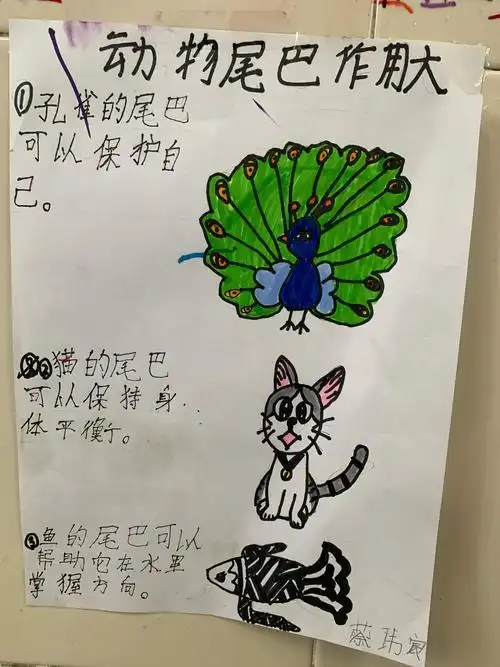 动物尾巴作用大
①孔雀的尾巴
可以保护自
己。
②猫的尾巴
可以保持身
体平衡。
③鱼的尾巴可以
帮助它在水里
掌握方向。
蔡玮宸